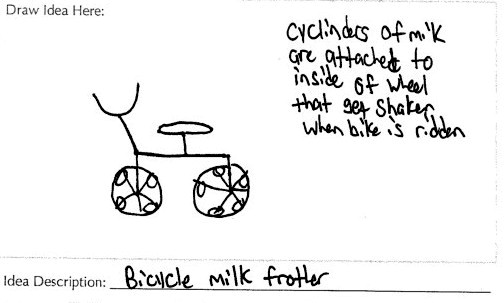 Draw Idea Here:
cylinders of milk
are attached to
inside of wheel
that get shaken
when bike is ridden
Idea Description: Bicycle milk frother